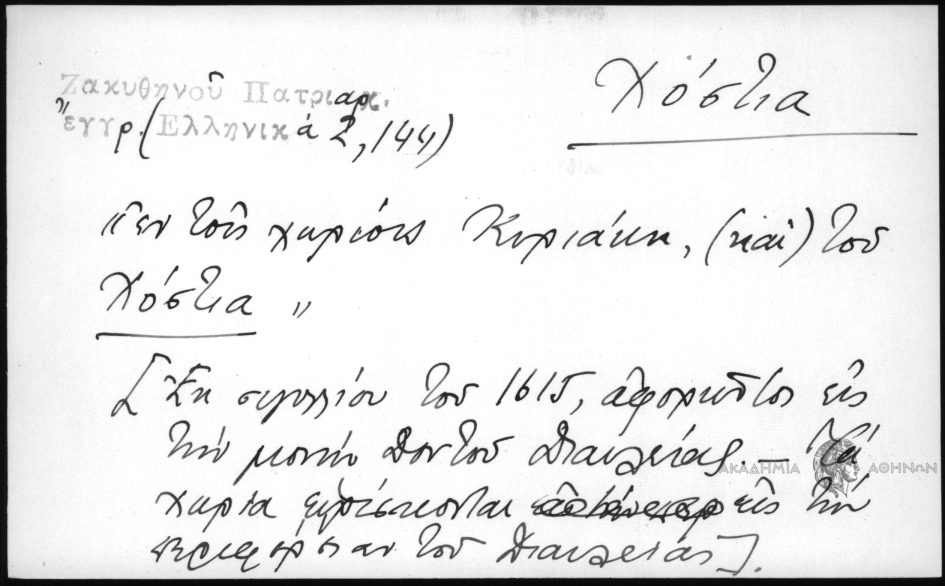 Χόστια
Ζακυθηνοῦ Πατριαρχ.
ἔγγρ. (Ἑλληνικά 2, 144)
"ἐν τοῖς χωρίοις Κυριάκη, (καὶ) τοῦ
Χόστια"
[Ἐκ σιγιλλίου τοῦ 1615, ἀφορῶντος εἰς
τὴν μονὴν τοῦ Δαυλείας. — Τὰ
χωρία εὑρίσκονται εἰς τὴν
περιφέρειαν τοῦ Δαυλείας].
ΑΚΑΔΗΜΙΑ ΑΘΗΝΩΝ